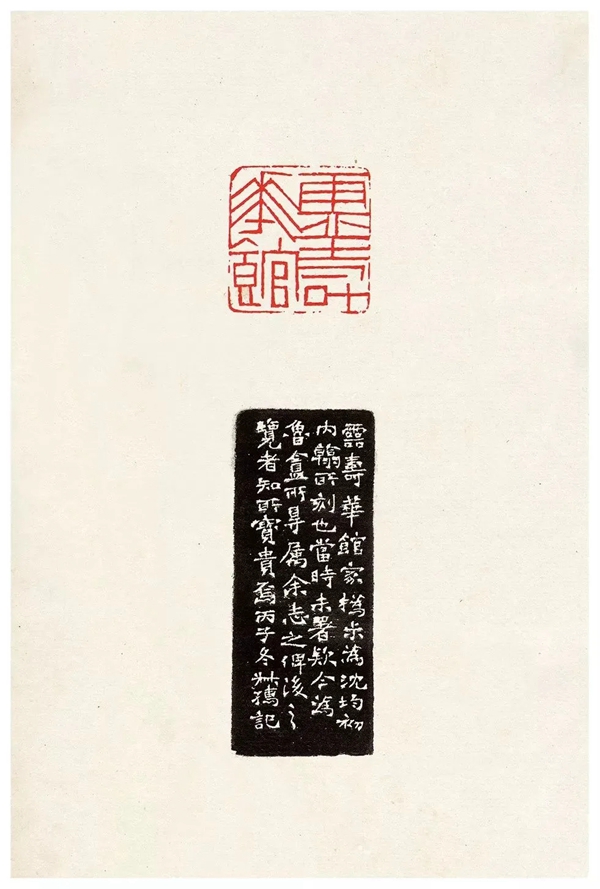 壽
華館
靈壽華館家撝尗為沈均初
內翰所刻也當時未署款今為
魯盦所得属余志之俾後之
覽者知所寶貴焉丙子冬尗孺記